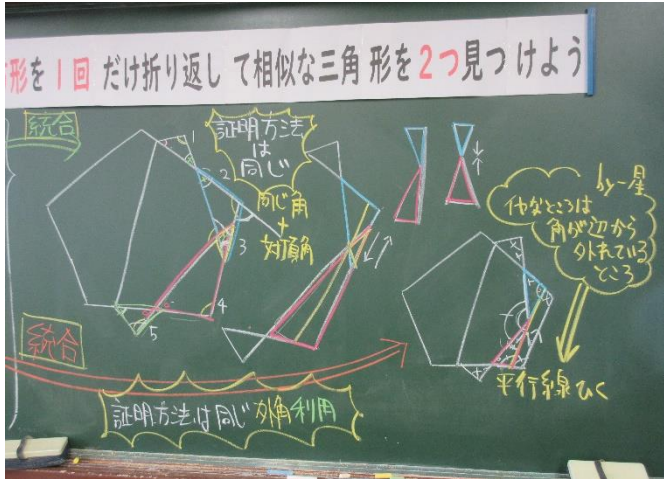 形を１回だけ折り返して相似な三角形を２つ見つけよう
統合
証明方法
は
同じ
同じ角
+
対頂角
1
2
3
4
5
by一星
他なところは
角が辺から
外れている
ところ
平行線ひく
統合
証明方法は同じ 外角利用